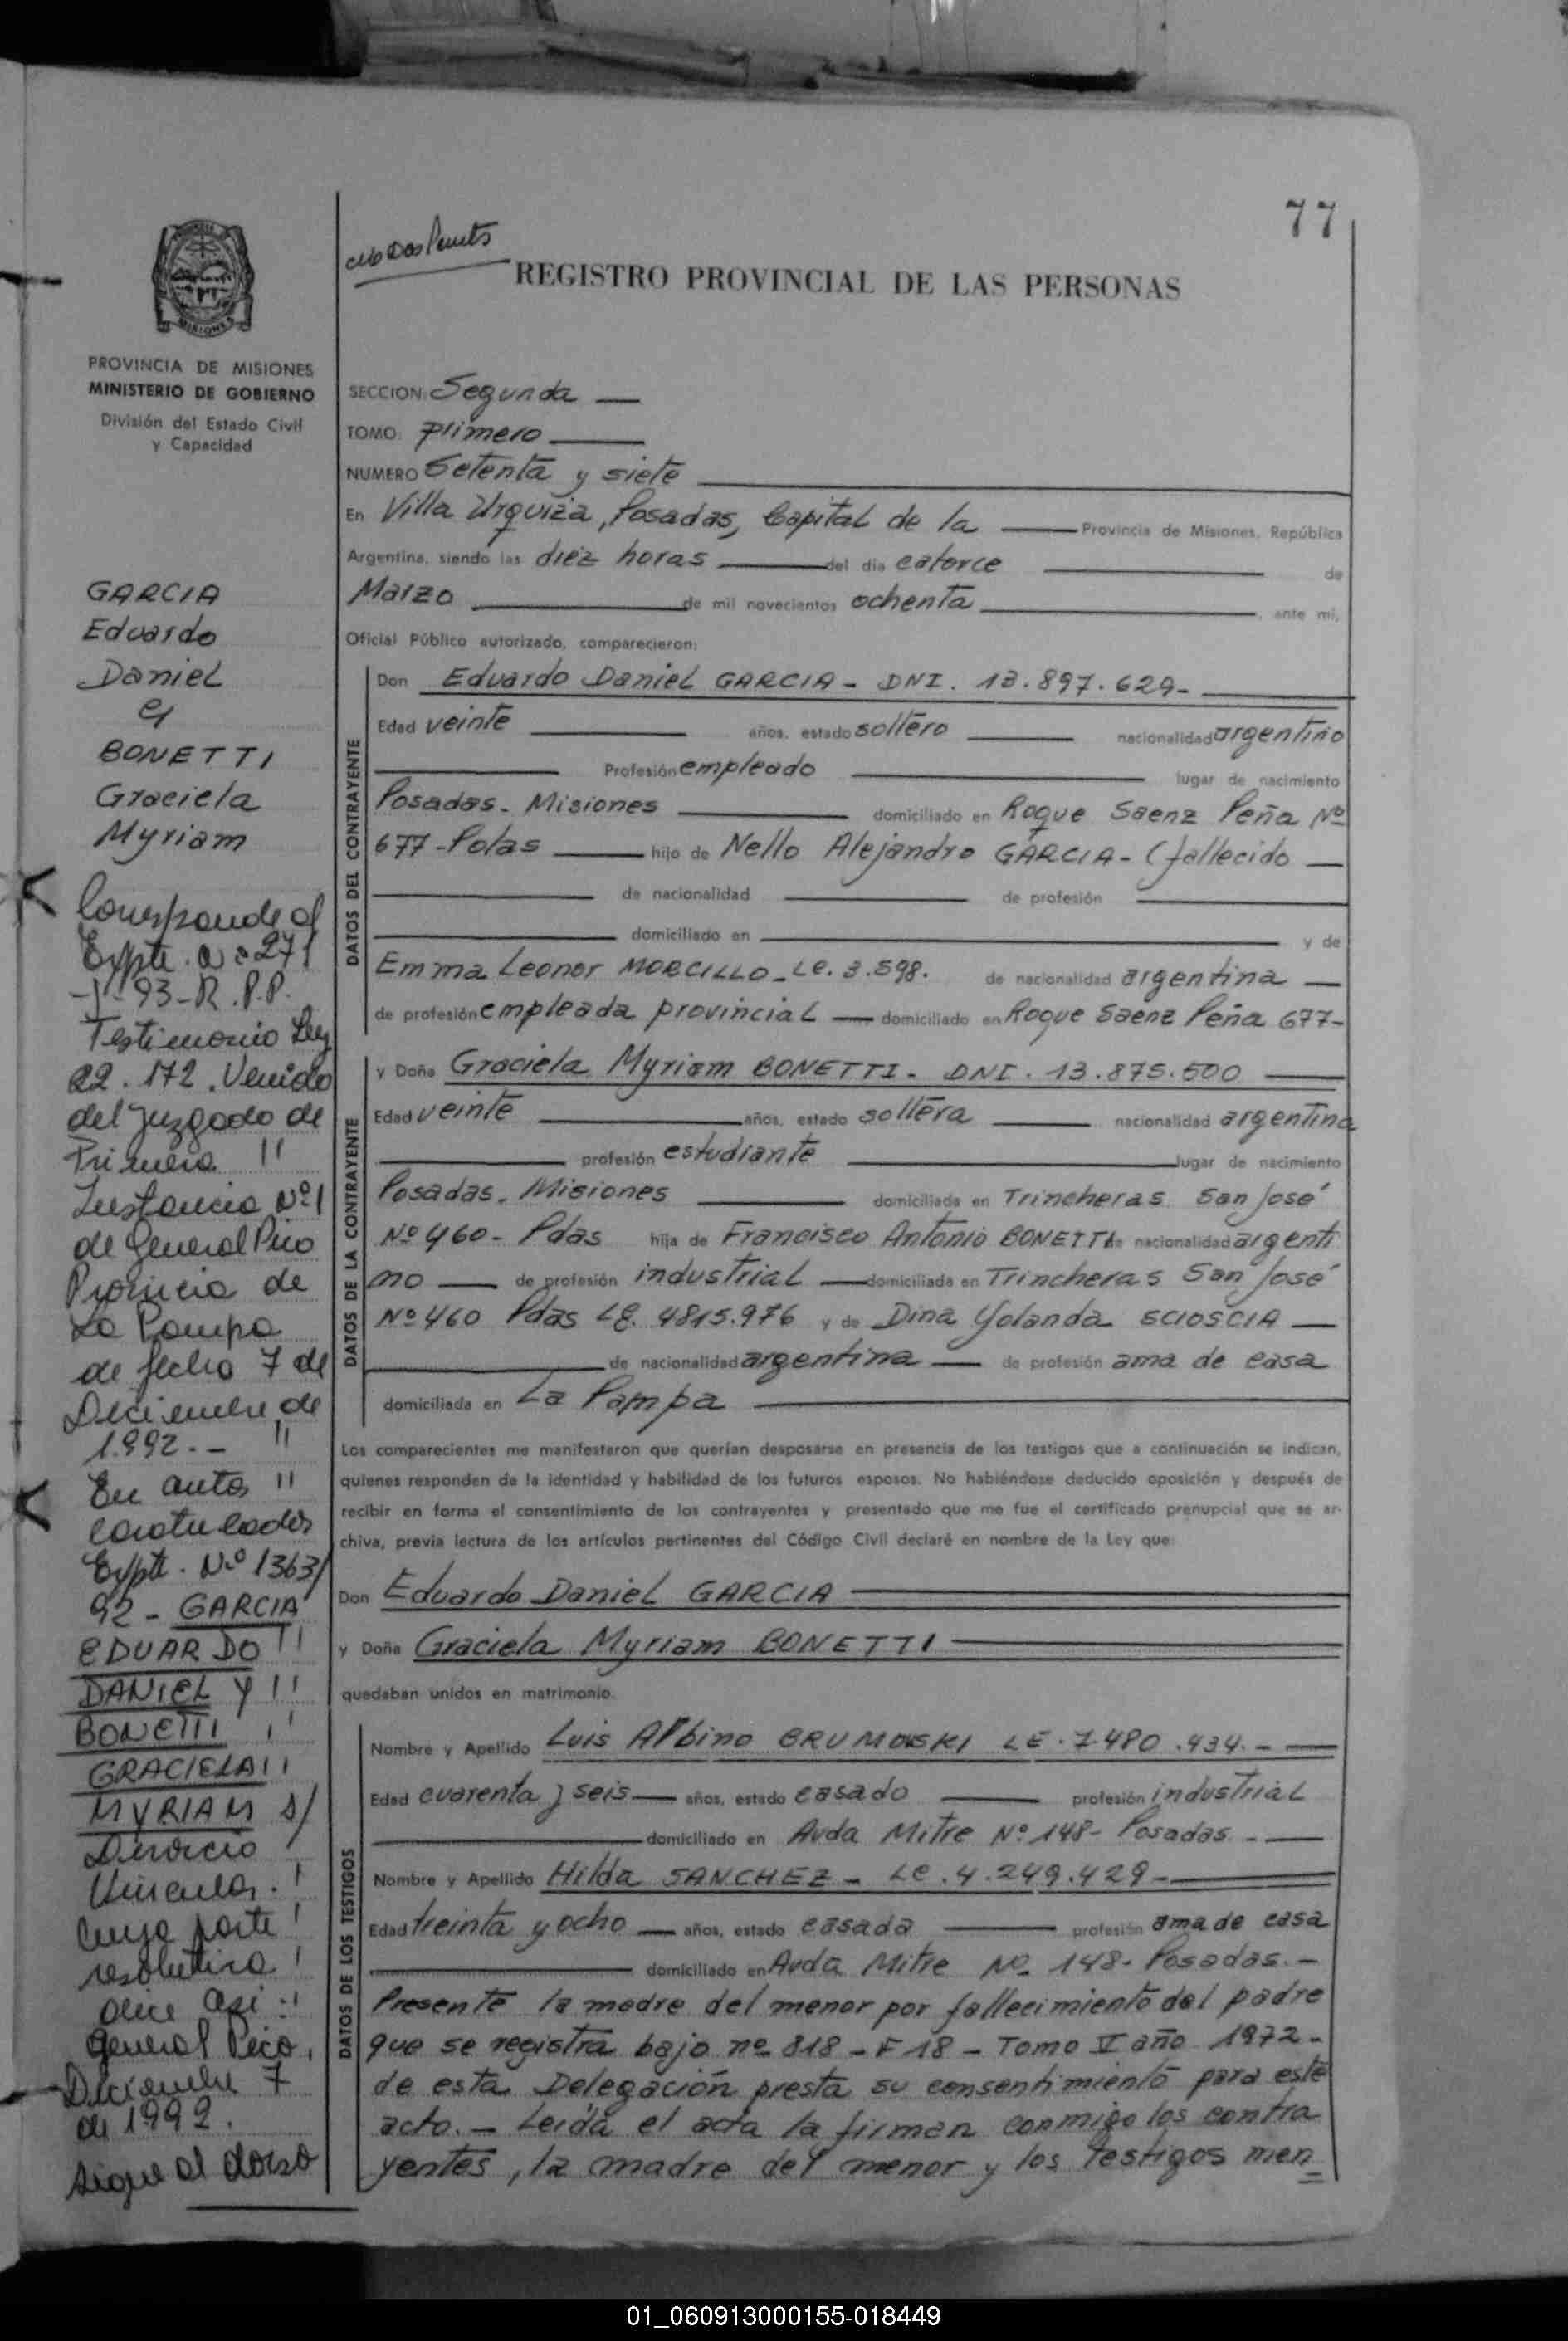 77
REGISTRO PROVINCIAL DE LAS PERSONAS
MISIONES
PROVINCIA DE MISIONES
MINISTERIO DE GOBIERNO
División del Estado Civil
y Capacidad
GARCIA
Eduardo
Daniel
y
BONETTI
Graciela
Myriam
Corresponde al
Expte. nº 271
-J-93-R.P.P.
Testimonio Ley
22.172. Venido
del Juzgado de
Primera "
Instancia Nº1
de General Pico
Provincia de
La Pampa
de fecha 7 de
Diciembre de
1.992.-- "
En autos "
caratulados
Expte. Nº 1363/
92 - GARCIA
EDUARDO "
DANIEL Y "
BONETTI "
GRACIELA "
MYRIAM s/
Divorcio
Vincular. !
Cuya parte !
resolutiva !
dice así :
General Pico,
Diciembre 7
de 1992.
Sigue al dorso
SECCION: Segunda
TOMO: primero
NUMERO Setenta y siete
En Villa Urquiza, Posadas, Capital de la Provincia de Misiones, República
Argentina, siendo las diez horas del día catorce de
Marzo de mil novecientos ochenta, ante mi,
Oficial Público autorizado, comparecieron:
DATOS DEL CONTRAYENTE
Don Eduardo Daniel GARCIA - DNI. 13.897.629-
Edad veinte años, estado soltero nacionalidad argentino
Profesión empleado lugar de nacimiento
Posadas - Misiones domiciliado en Roque Saenz Peña Nº
677 - Pdas hijo de Nello Alejandro GARCIA - (fallecido
de nacionalidad de profesión
domiciliado en y de
Emma Leonor MORCILLO - Le. 3.598. de nacionalidad argentina
de profesión empleada provincial domiciliado en Roque Saenz Peña 677-
DATOS DE LA CONTRAYENTE
y Doña Graciela Myriam BONETTI - DNI. 13.875.500
Edad veinte años, estado soltera nacionalidad argentina
profesión estudiante lugar de nacimiento
Posadas - Misiones domiciliada en Trincheras San José
Nº 460 - Pdas hija de Francisco Antonio BONETTI de nacionalidad argenti
no de profesión industrial domiciliada en Trincheras San José
Nº 460 Pdas LE. 4815.976 y de Dina Yolanda SCIOSCIA
de nacionalidad argentina de profesión ama de casa
domiciliada en La Pampa
Los comparecientes me manifestaron que querían desposarse en presencia de los testigos que a continuación se indican,
quienes responden de la identidad y habilidad de los futuros esposos. No habiéndose deducido oposición y después de
recibir en forma el consentimiento de los contrayentes y presentado que me fue el certificado prenupcial que se ar-
chiva, previa lectura de los artículos pertinentes del Código Civil declaré en nombre de la Ley que:
Don Eduardo Daniel GARCIA
y Doña Graciela Myriam BONETTI
quedaban unidos en matrimonio.
DATOS DE LOS TESTIGOS
Nombre y Apellido Luis Albino BRUMOSKI LE. 7480.434.-
Edad cuarenta y seis años, estado casado profesión industrial
domiciliado en Avda Mitre Nº 148- Posadas.-
Nombre y Apellido Hilda SANCHEZ - Le. 4.249.429-
Edad treinta y ocho años, estado casada profesión ama de casa
domiciliado en Avda Mitre Nº 148- Posadas.-
Presente la madre del menor por fallecimiento del padre
que se registra bajo nº 818 - F 18 - Tomo II año 1972-
de esta Delegación presta su consentimiento para este
acto.- Leída el acta la firman conmigo los contra
yentes, la madre del menor y los testigos men
01_060913000155-018449